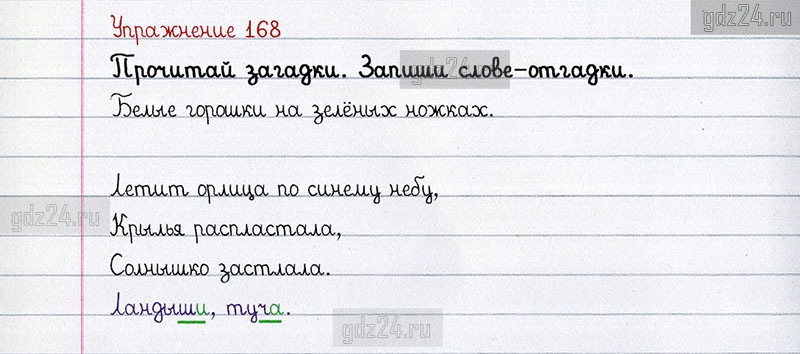 gdz24.ru
Упражнение 168
Прочитай загадки. Запиши слове-отгадки.
gdz24.ru
Белые горашки на зелёных ножках.
Летит орлица по синему небу,
gdz24.ru
Крылья распластала,
Солнышко застлала.
Ландыши, туча.
gdz24.ru